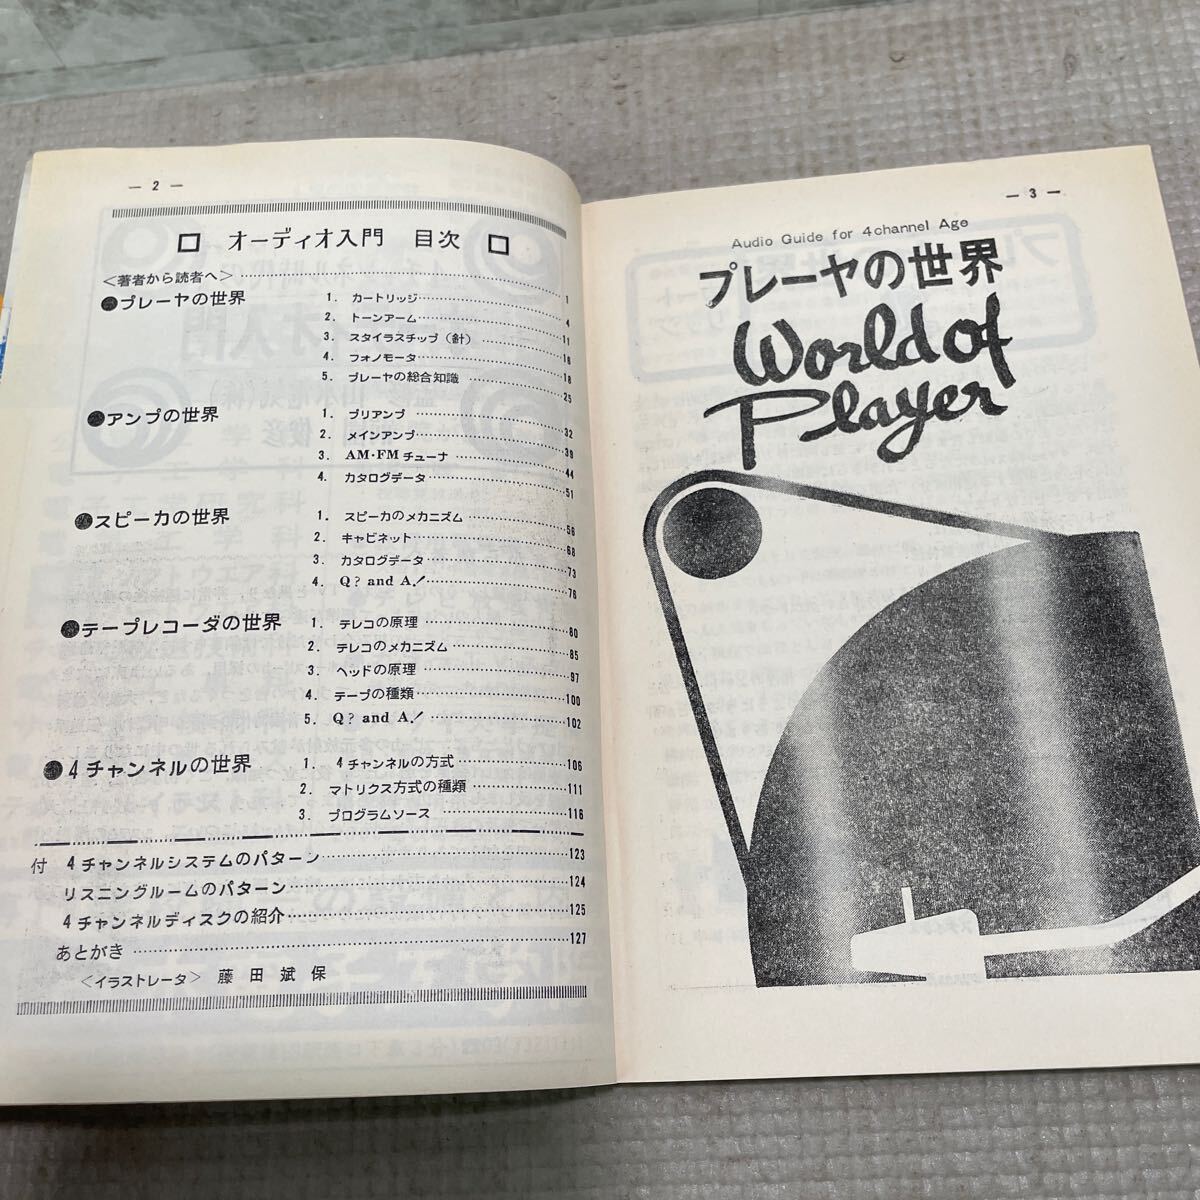 — 2 —
オーディオ入門 目次
<著者から読者へ>……1
●プレーヤの世界 1. カートリッジ……4
2. トーンアーム……11
3. スタイラスチップ(針)……16
4. フォノモータ……18
5. プレーヤの総合知識……25
●アンプの世界 1. プリアンプ……32
2. メインアンプ……39
3. AM・FMチューナ……44
4. カタログデータ……51
●スピーカの世界 1. スピーカのメカニズム……56
2. キャビネット……68
3. カタログデータ……73
4. Q? and A!……76
●テープレコーダの世界 1. テレコの原理……80
2. テレコのメカニズム……85
3. ヘッドの原理……97
4. テープの種類……100
5. Q? and A!……102
●4チャンネルの世界 1. 4チャンネルの方式……106
2. マトリクス方式の種類……111
3. プログラムソース……116
付 4チャンネルシステムのパターン……123
リスニングルームのパターン……124
4チャンネルディスクの紹介……125
あとがき……127
<イラストレータ> 藤田斌保
— 3 —
Audio Guide for 4channel Age
プレーヤの世界
World of
Player